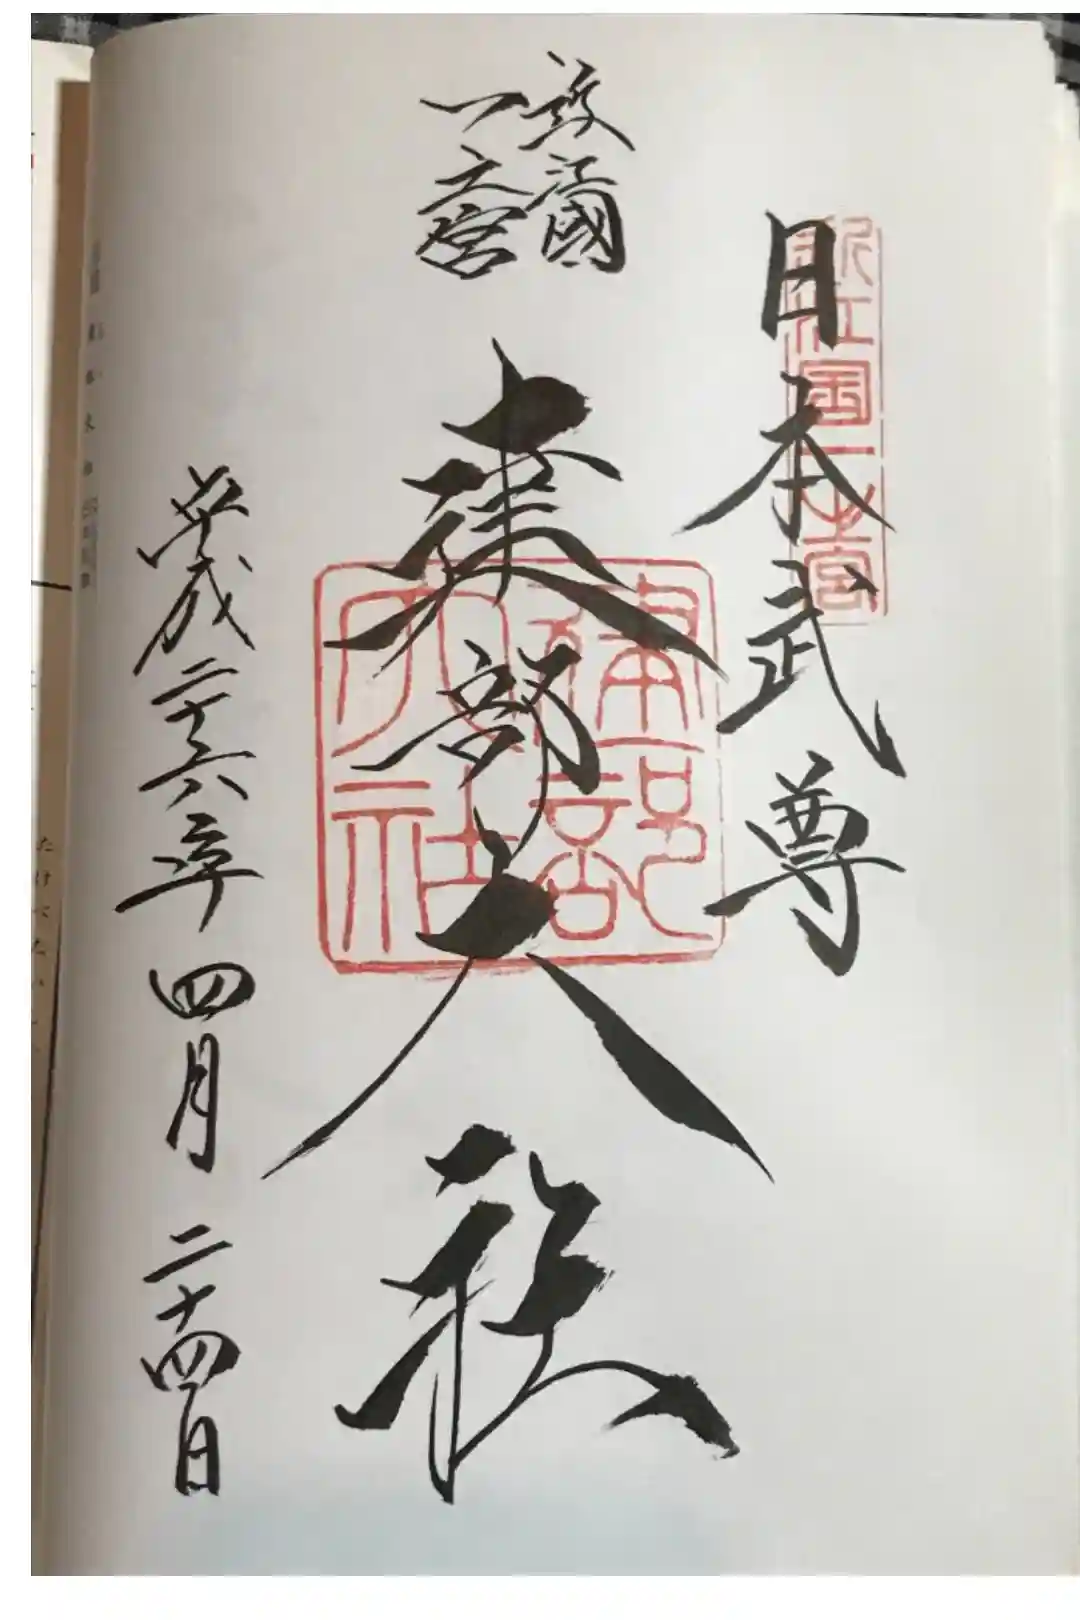 日本武尊
近江國一之宮
近江國
一之宮
建部大社
建部大社
平成二十六年四月二十四日